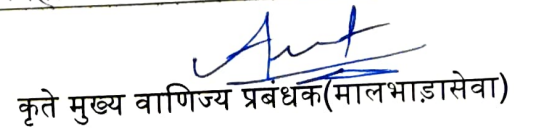 कृते मुख्य वाणिज्य प्रबंधक(मालभाड़ासेवा)